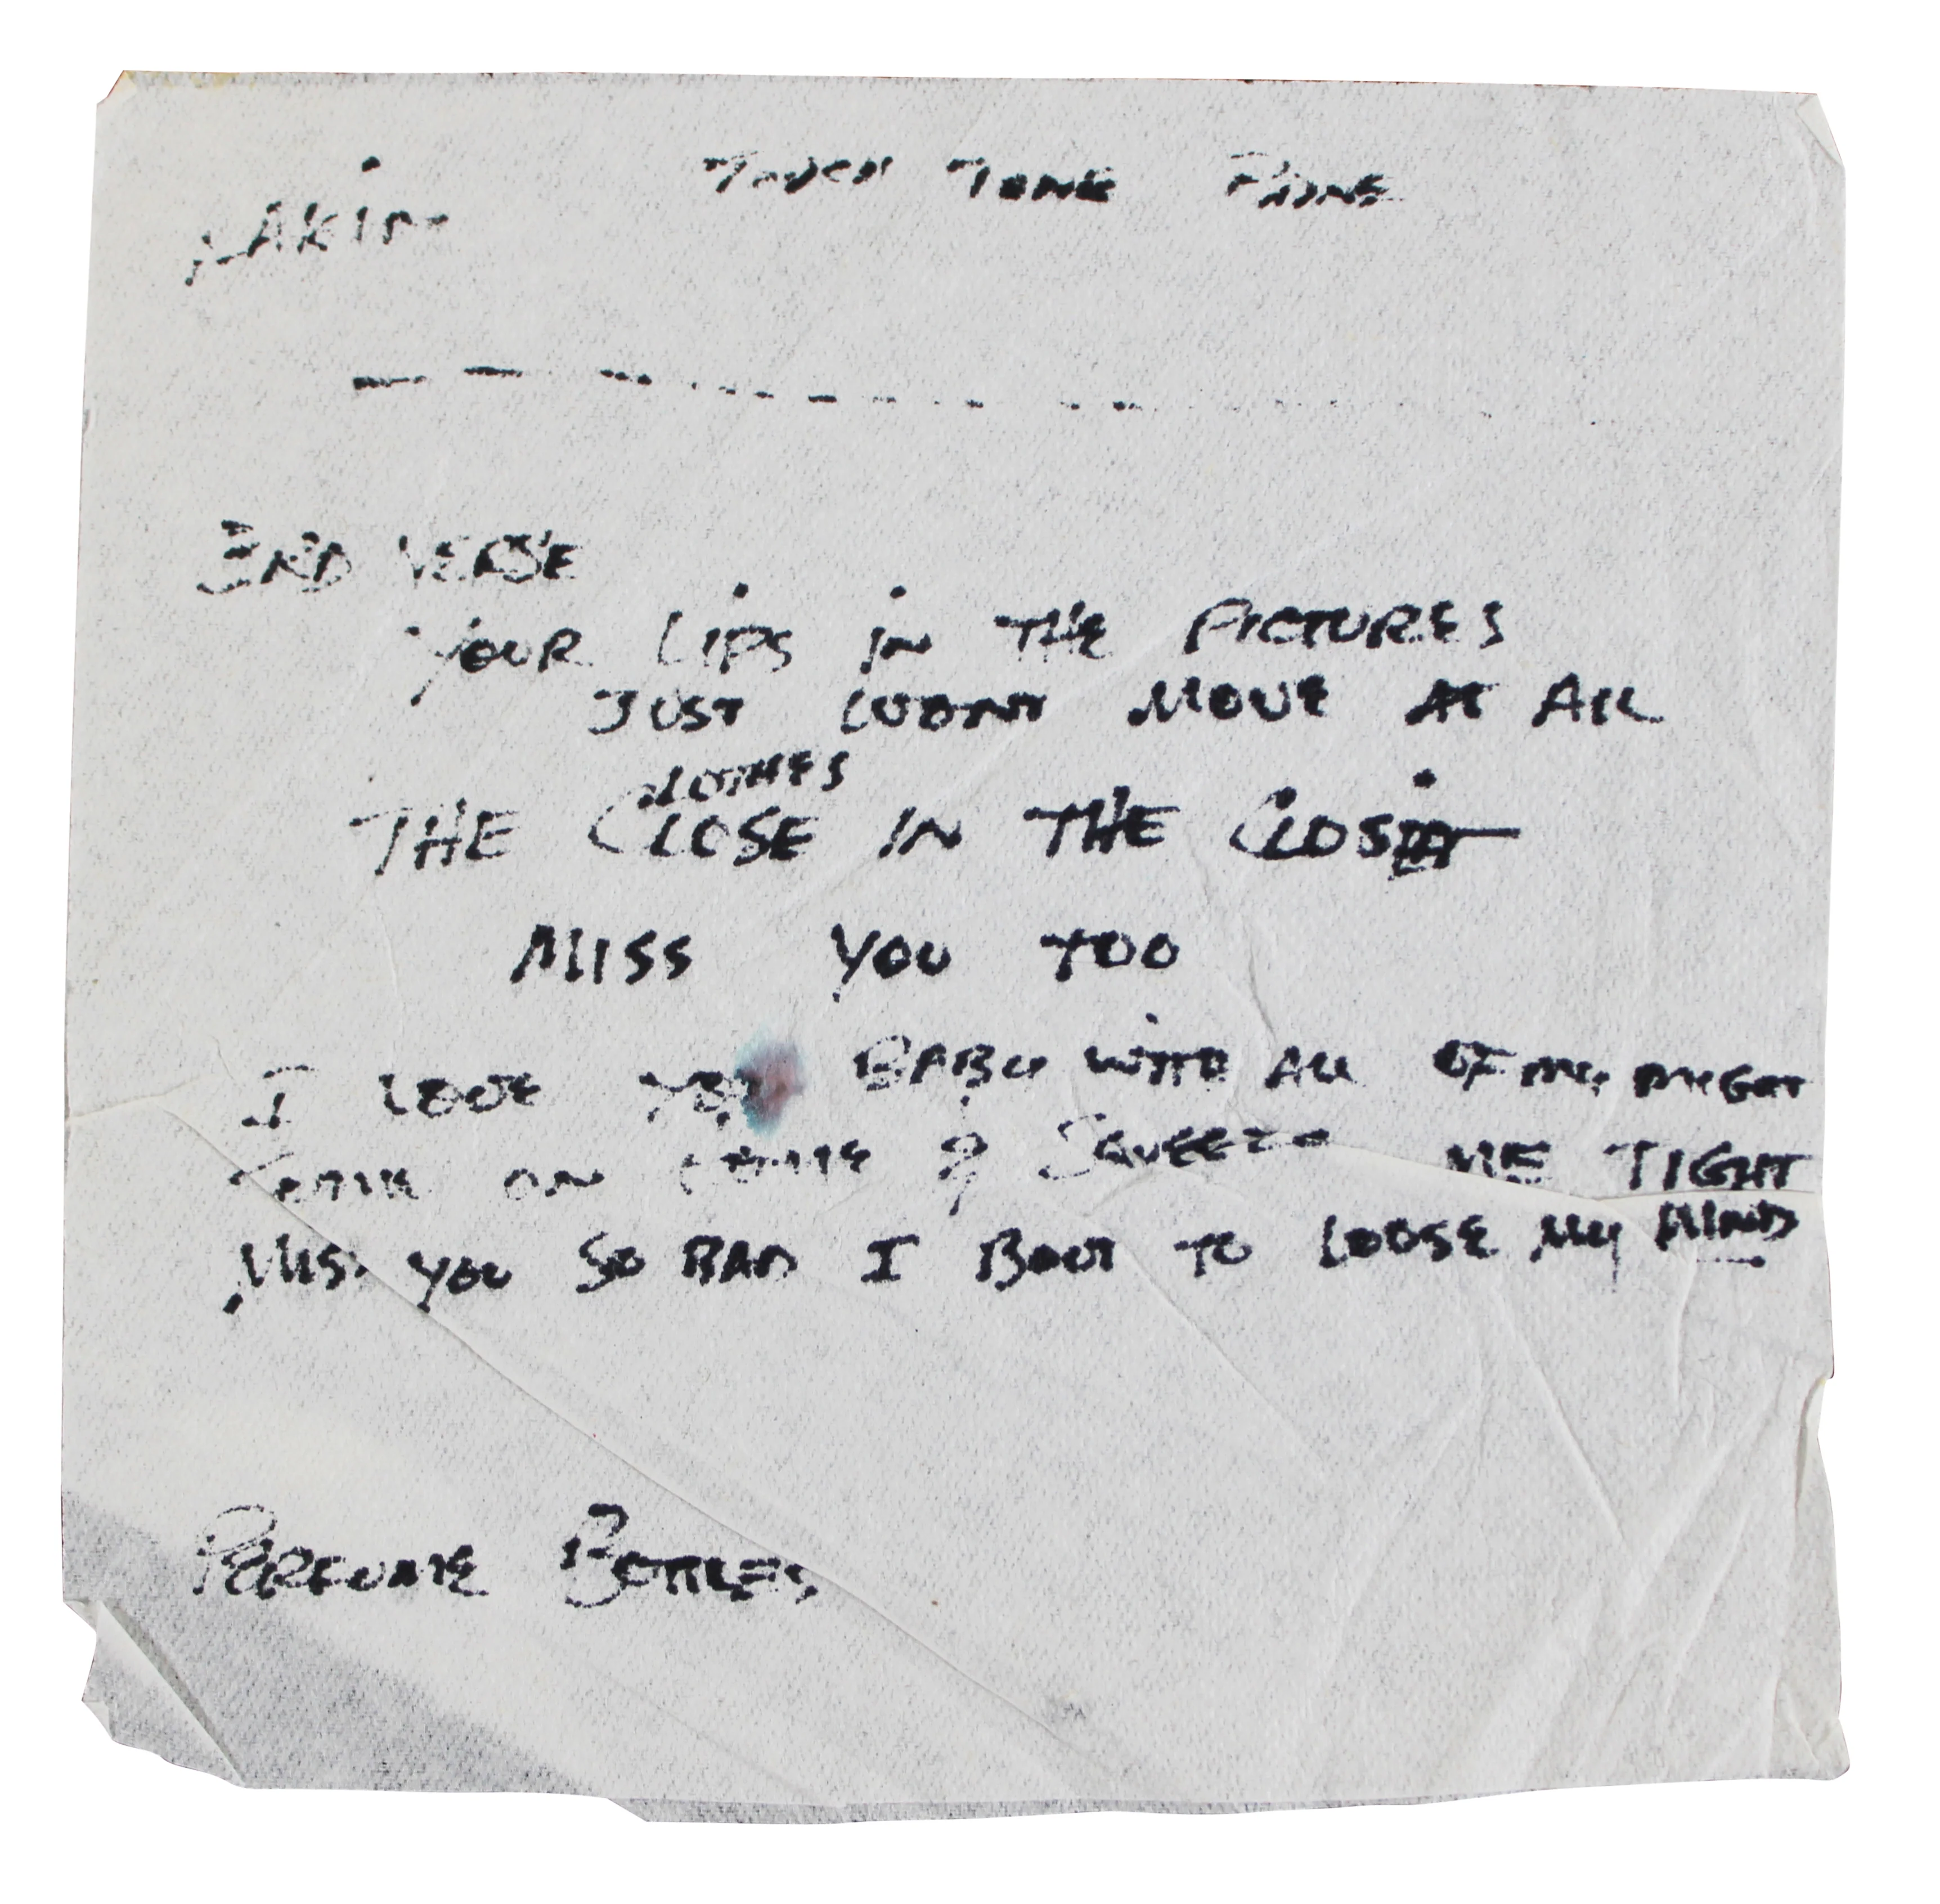 TOUCH TONE PHONE
MAKIN
3RD VERSE
YOUR LIPS IN THE PICTURES
JUST WONT MOVE AT ALL
CLOTHES
THE CLOSE IN THE CLOSIT
MISS YOU TOO
I LOVE YOU BABY WITH ALL OF MY MIGHT
ON HOME & SQUEEZE ME TIGHT
MISS YOU SO BAD I BOUT TO LOOSE MY MIND
PERFUME BOTTLES